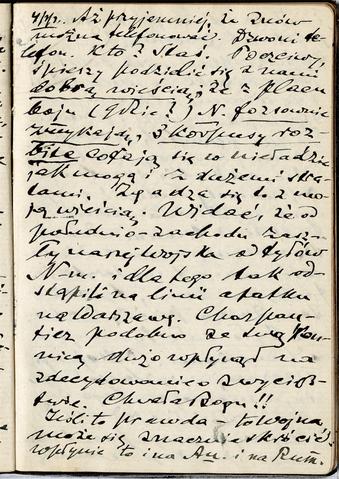 4/IX. Aż przyjemniej, że znów
można telefonować. Dzwoni te-
lefon. Kto? Staś. Poczciwy,
spieszy podzielić się z nami
dobrą wieścią, że z placu
boju (gdzie?) N. forsownie
zmykają, 3 korpusy roz-
bite cofają się w nieładzie
jak mogą i z dużemi stra-
tami. Zgadza się to z mo-
ją wieścią. Widać, że od
południo-zachodu zasz-
ły naszej wojska od tyłów
N-m. i dla tego tak od-
stąpili na linii ataku
na Warszawę. Charpan-
tier podobno ze swą
nicą dużo wpłynął na
zdecydowanie o zwycięst-
wie. Chwała Bogu!!
Jeśli to prawda - to wojna
może się znacznie skrócić.
Wpłynie to i na An. i na Rum.